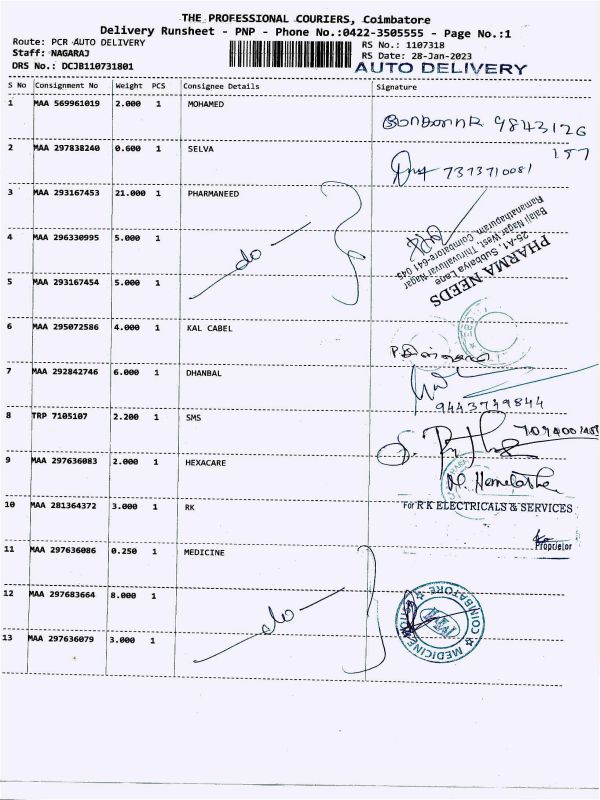 THE PROFESSIONAL COURIERS, Coimbatore
Delivery Runsheet - PNP - Phone No.:0422-3505555 - Page No.:1
Route: PCR AUTO DELIVERY
RS No.: 1107318
Staff: NAGARAJ
RS Date: 28-Jan-2023
DRS No.: DCJB110731801
AUTO DELIVERY
S No Consignment No Weight PCS Consignee Details Signature
1 MAA 569961019 2.000 1 MOHAMED
9843126
157
2 MAA 297838240 0.600 1 SELVA
7373710081
3 MAA 293167453 21.000 1 PHARMANEED
4 MAA 296330995 5.000 1
do
5 MAA 293167454 5.000 1
PHARMA NEEDS
25-A1, Subbaiya Lane
Balaji Nagar West, Thiruvalluvar Nagar
Ramanathapuram, Coimbatore-641 045
6 MAA 295072586 4.000 1 KAL CABEL
7 MAA 292842746 6.000 1 DHANBAL
9443749844
8 TRP 7105107 2.200 1 SMS
9 MAA 297636083 2.000 1 HEXACARE
10 MAA 281364372 3.000 1 RK
For R K ELECTRICALS & SERVICES
Proprietor
11 MAA 297636086 0.250 1 MEDICINE
12 MAA 297683664 8.000 1
do
13 MAA 297636079 3.000 1
COIMBATORE
MEDICINE